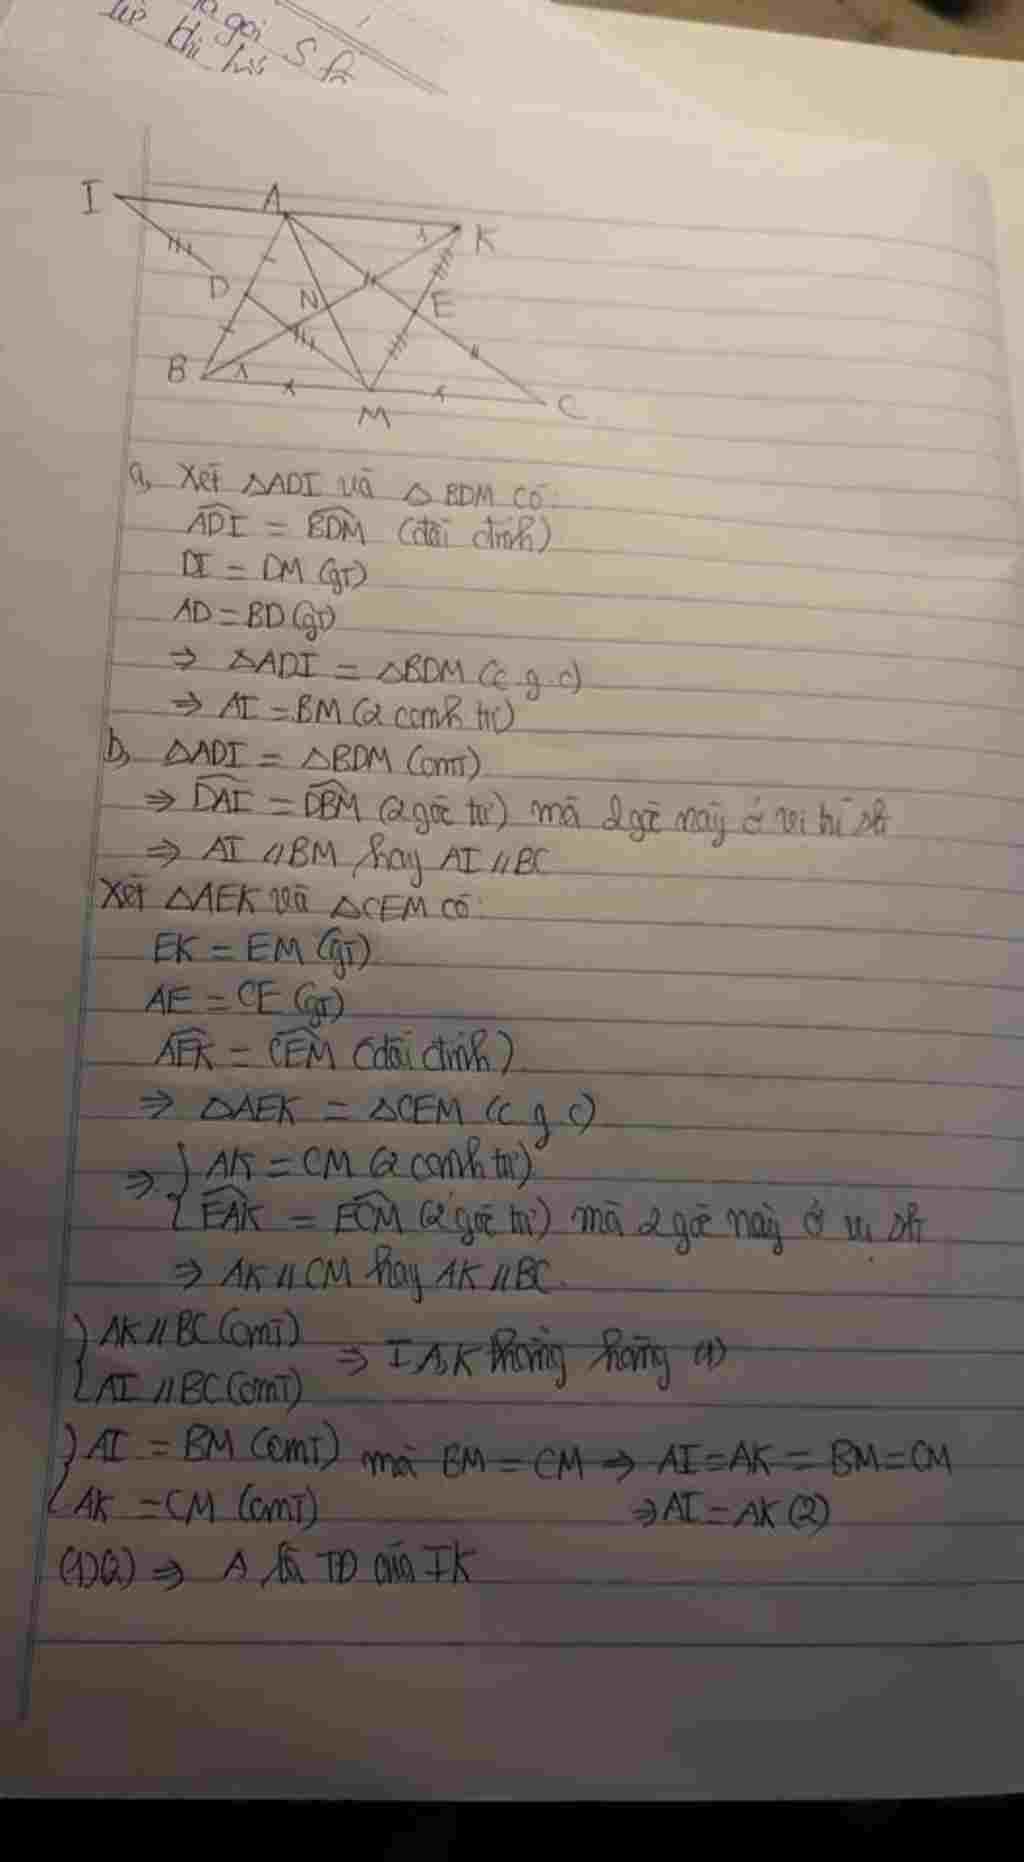 là gọi S là
khi
I A K
D N E
B M C
a, Xét △ADI và △BDM có:
ADI = BDM (đối đỉnh)
DI = DM (gt)
AD = BD (gt)
⇒ △ADI = △BDM (c.g.c)
⇒ AI = BM (2 cạnh tư)
b, △ADI = △BDM (cmt)
⇒ DAI = DBM (2 góc tư) mà 2 góc này ở vị trí slt
⇒ AI // BM hay AI // BC
Xét △AEK và △CEM có:
EK = EM (gt)
AE = CE (gt)
AEK = CEM (đối đỉnh)
⇒ △AEK = △CEM (c g c)
⇒ { AK = CM (2 cạnh tư)
EAK = ECM (2 góc tư) mà 2 góc này ở vị slt
⇒ AK // CM hay AK // BC.
{ AK // BC (cmt)
AI // BC (cmt) ⇒ I, A, K thẳng hàng (1)
{ AI = BM (cmt) mà BM = CM ⇒ AI = AK = BM = CM
AK = CM (cmt) ⇒ AI = AK (2)
(1)(2) ⇒ A là TĐ của IK